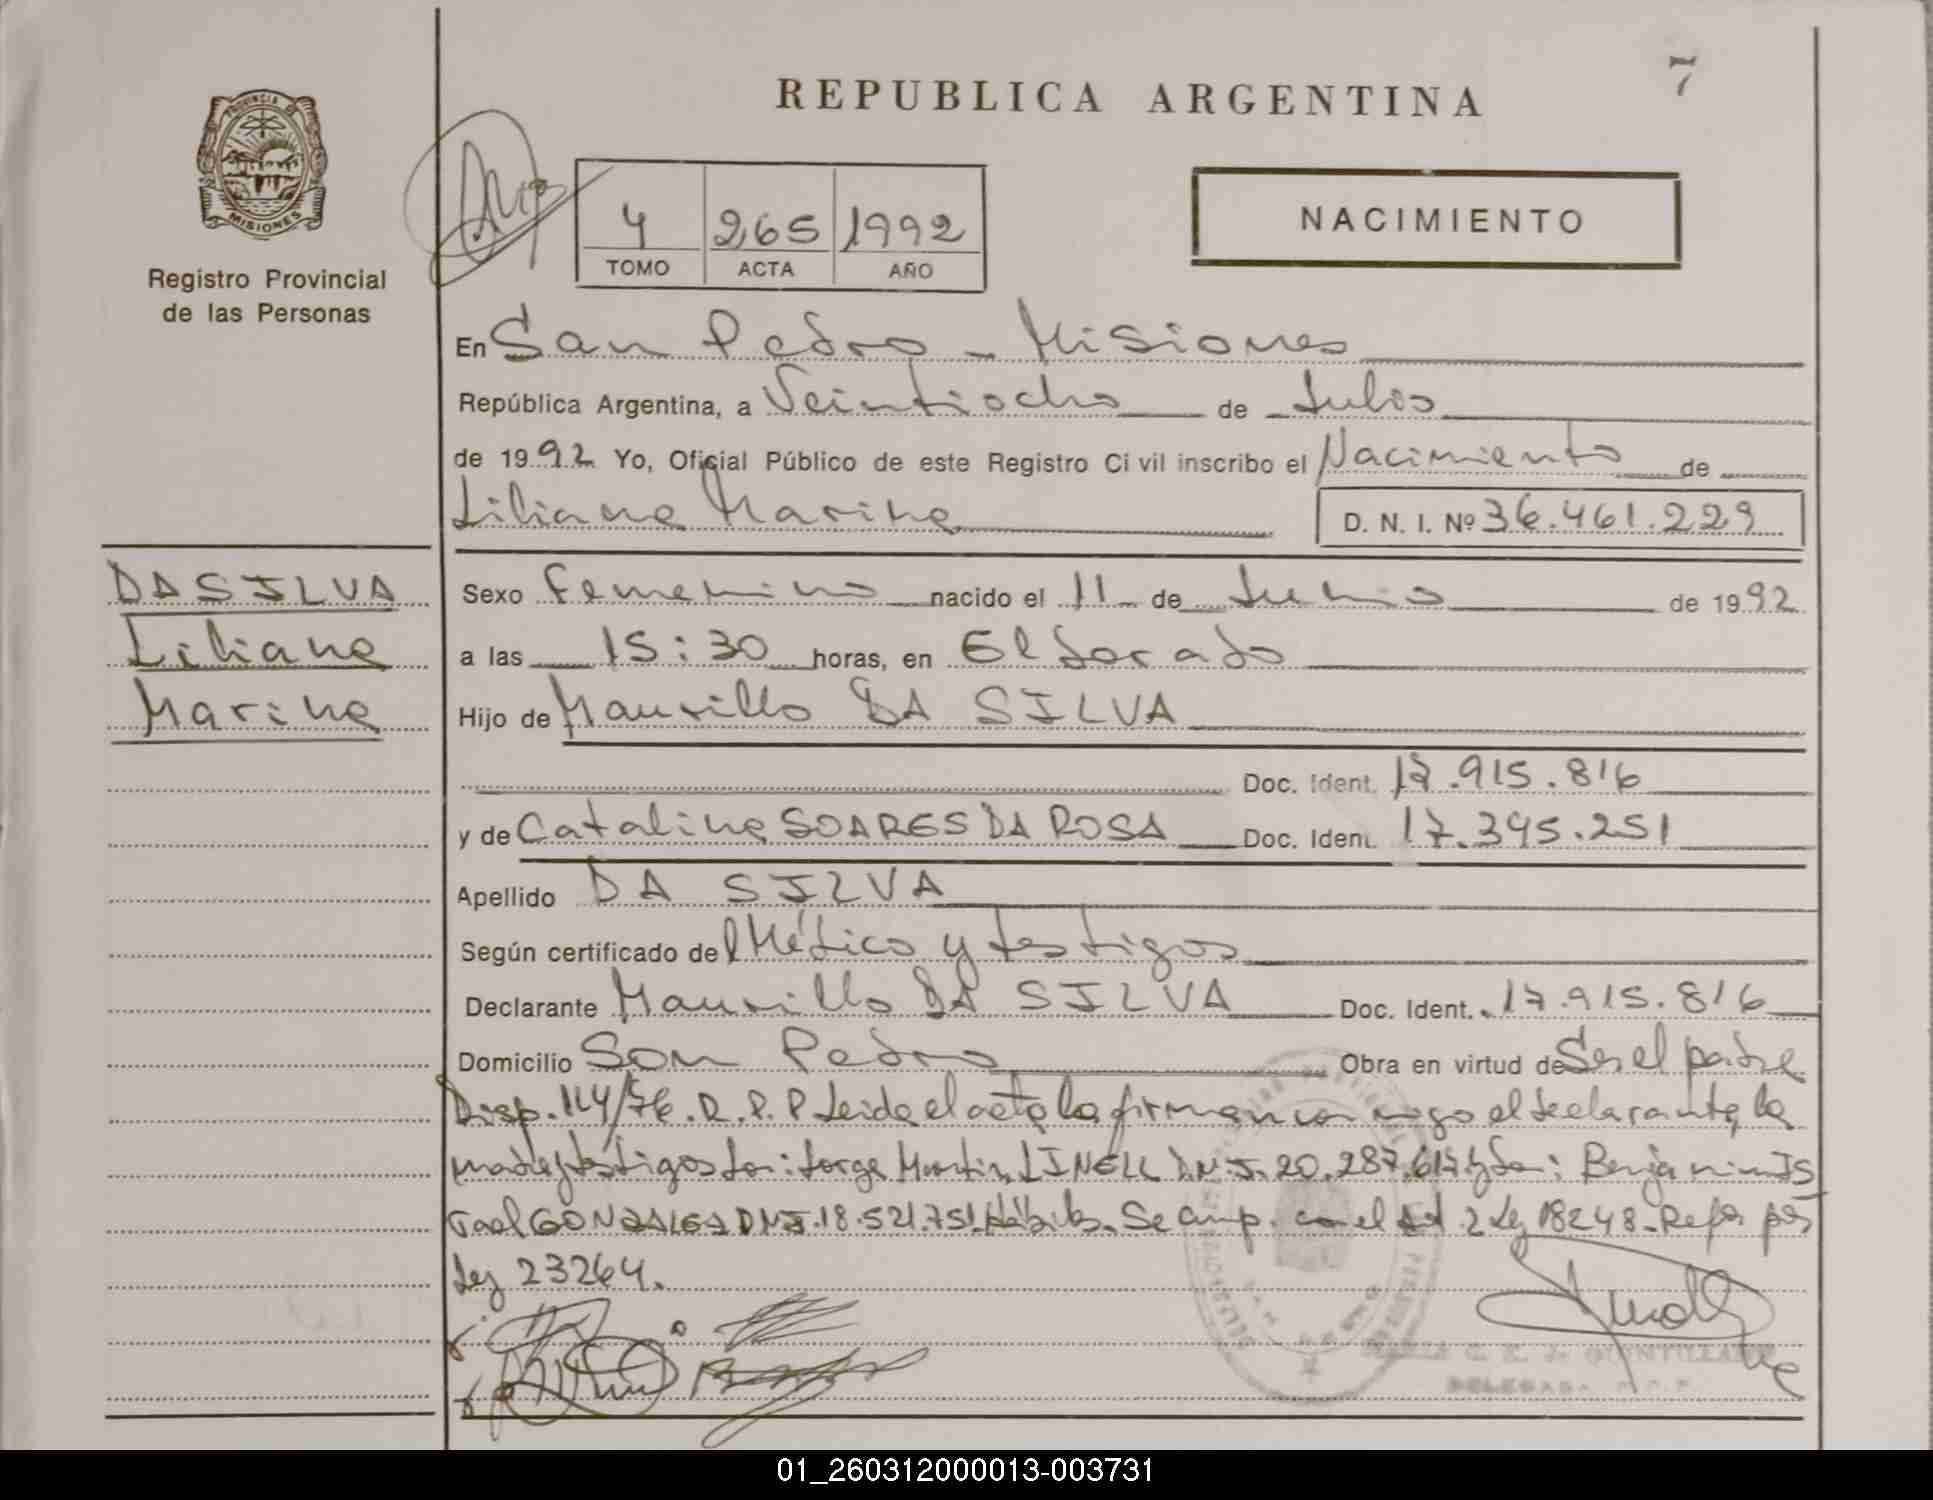 7
REPUBLICA ARGENTINA
PROVINCIA DE
MISIONES
Registro Provincial
de las Personas
4 265 1992
TOMO ACTA AÑO
NACIMIENTO
En San Pedro - Misiones
República Argentina, a Veintiocho de Julio
de 1992 Yo, Oficial Público de este Registro Civil inscribo el Nacimiento de
Liliana Marina D. N. I. Nº 36.461.229
DA SILVA
Liliana
Marina
Sexo Femenino nacido el 11 de Junio de 1992
a las 15:30 horas, en Eldorado
Hijo de Maurillo DA SILVA
Doc. Ident. 17.915.816
y de Catalina SOARES DA ROSA Doc. Ident. 17.395.251
Apellido DA SILVA
Según certificado del Médico y testigos
Declarante Maurillo DA SILVA Doc. Ident. 17.915.816
Domicilio San Pedro Obra en virtud de Ser el padre
Disp. 114/76. R.P.P Leida el acta la firman conmigo el declarante, la
madre y testigos Don: Jorge Martin LINELL D.N.I. 20.287.617 y Don: Benjamin IS
rael GONZALEZ DNI. 18.521.751 Hábiles. Se cump. con el Art. 2 Ley 18248 - Refor por
Ley 23264.
G. E. de QUINTILLAN
DELEGADA R.P.P.
01_260312000013-003731